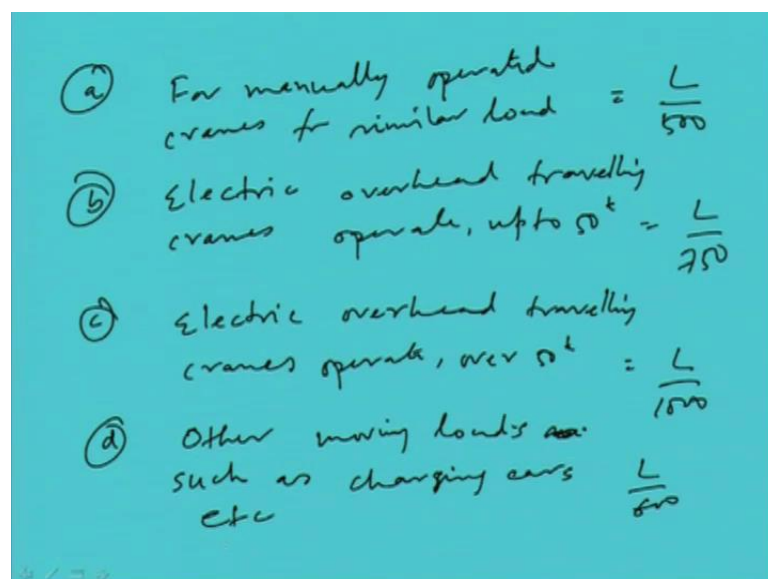 (a) For manually operated
cranes fr similar load = L/500
(b) Electric overhead travelling
cranes operate, upto 50t = L/750
(c) Electric overhead travelling
cranes operate, over 50t = L/1000
(d) Other moving loads
such as charging cars L/600
etc